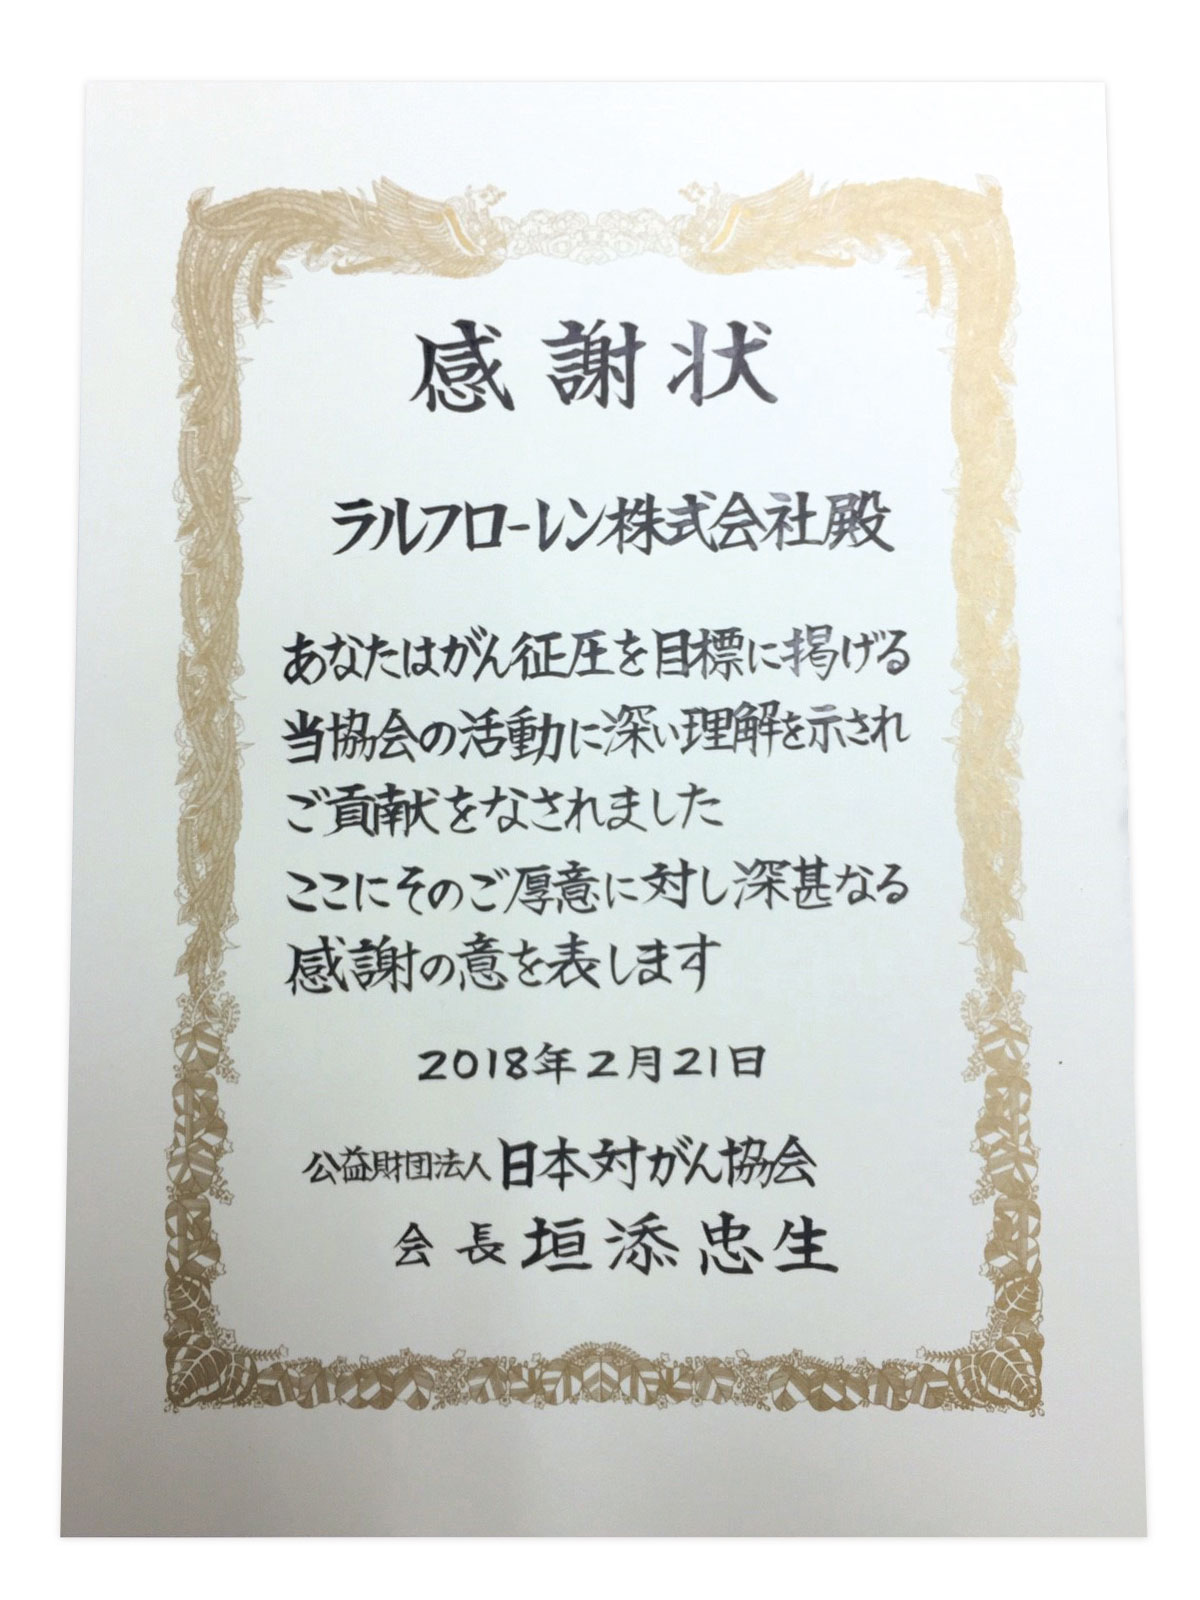 感謝状
ラルフローレン株式会社殿
あなたはがん征圧を目標に掲げる
当協会の活動に深い理解を示され
ご貢献をなされました
ここにそのご厚意に対し深甚なる
感謝の意を表します
2018年2月21日
公益財団法人 日本対がん協会
会長 垣添忠生